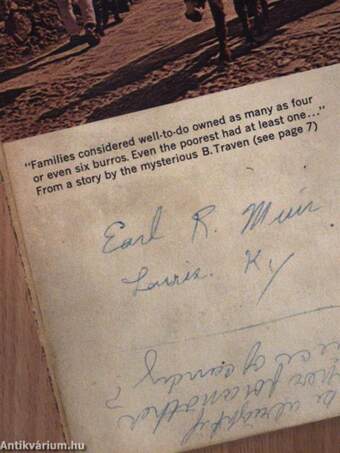 "Families considered well-to-do owned as many as four
or even six burros. Even the poorest had at least one..."
From a story by the mysterious B. Traven (see page 7)
Earl R. Muir
Louis. Ky
be alright
for another
of candy ?
Antikvárium.hu